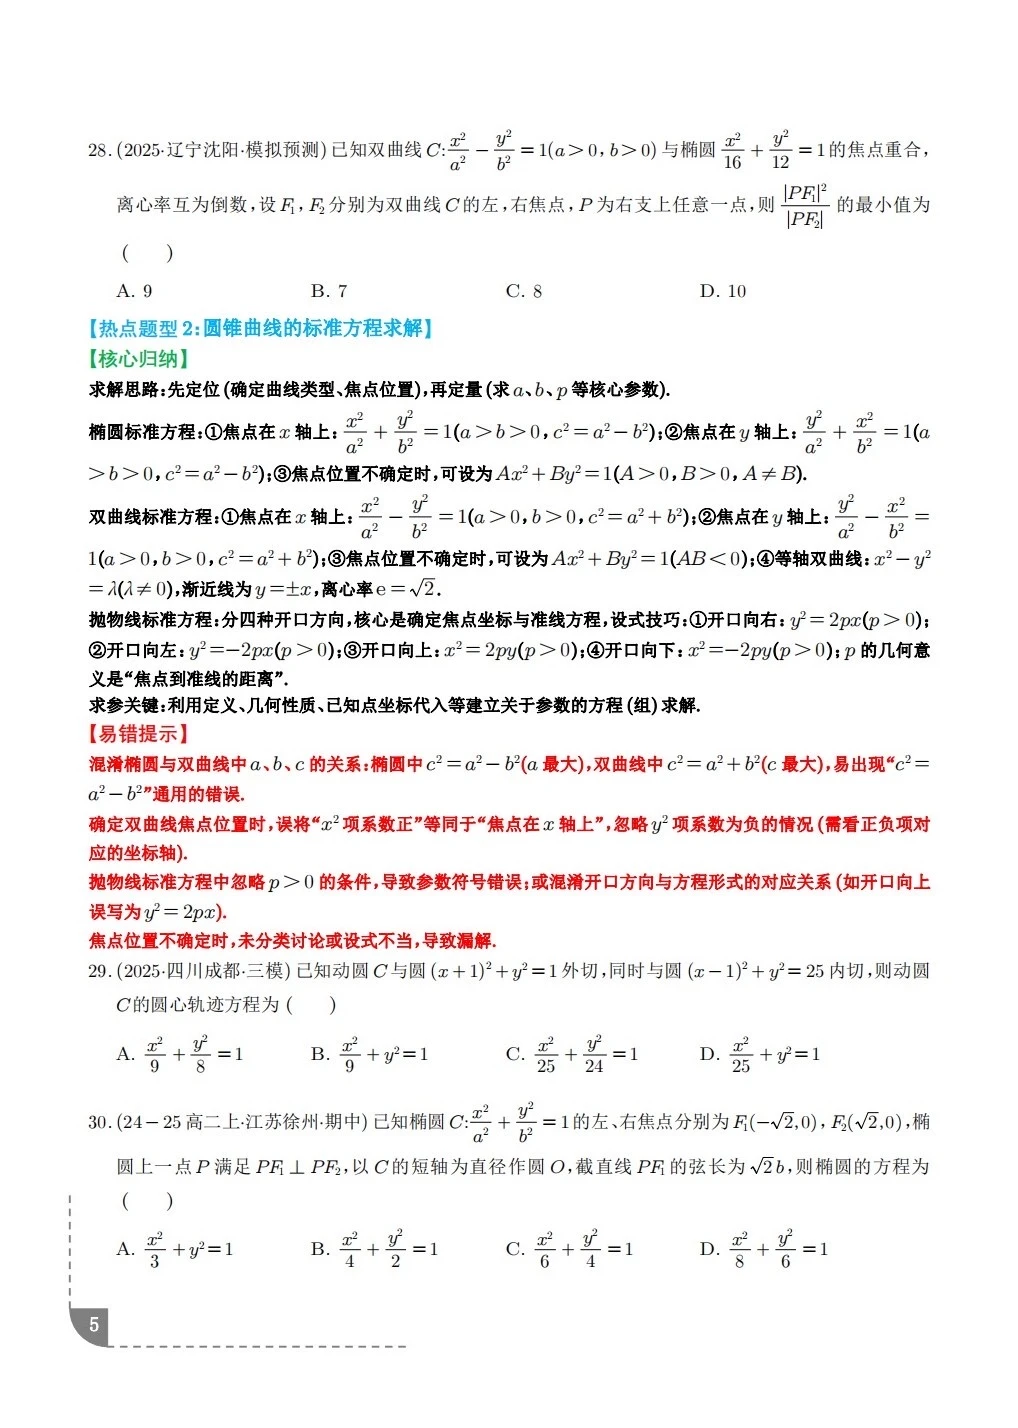 28.(2025·辽宁沈阳·模拟预测)已知双曲线C:x²/a² − y²/b² = 1(a>0,b>0)与椭圆 x²/16 + y²/12 = 1的焦点重合,
离心率互为倒数,设F₁,F₂分别为双曲线C的左,右焦点,P为右支上任意一点,则 |PF₁|²/|PF₂| 的最小值为
( )
A. 9 B. 7 C. 8 D. 10
【热点题型2:圆锥曲线的标准方程求解】
【核心归纳】
求解思路:先定位(确定曲线类型、焦点位置),再定量(求a、b、p等核心参数).
椭圆标准方程:①焦点在x轴上: x²/a² + y²/b² = 1(a>b>0,c²=a²−b²);②焦点在y轴上: y²/a² + x²/b² = 1(a
>b>0,c²=a²−b²);③焦点位置不确定时,可设为Ax²+By²=1(A>0,B>0,A≠B).
双曲线标准方程:①焦点在x轴上: x²/a² − y²/b² = 1(a>0,b>0,c²=a²+b²);②焦点在y轴上: y²/a² − x²/b² =
1(a>0,b>0,c²=a²+b²);③焦点位置不确定时,可设为Ax²+By²=1(AB<0);④等轴双曲线:x²−y²
=λ(λ≠0),渐近线为y=±x,离心率e=√2.
抛物线标准方程:分四种开口方向,核心是确定焦点坐标与准线方程,设式技巧:①开口向右:y²=2px(p>0);
②开口向左:y²=−2px(p>0);③开口向上:x²=2py(p>0);④开口向下:x²=−2py(p>0);p的几何意
义是“焦点到准线的距离”.
求参关键:利用定义、几何性质、已知点坐标代入等建立关于参数的方程(组)求解.
【易错提示】
混淆椭圆与双曲线中a、b、c的关系:椭圆中c²=a²−b²(a最大),双曲线中c²=a²+b²(c最大),易出现“c²=
a²−b²”通用的错误.
确定双曲线焦点位置时,误将“x²项系数正”等同于“焦点在x轴上”,忽略y²项系数为负的情况(需看正负项对
应的坐标轴).
抛物线标准方程中忽略p>0的条件,导致参数符号错误;或混淆开口方向与方程形式的对应关系(如开口向上
误写为y²=2px).
焦点位置不确定时,未分类讨论或设式不当,导致漏解.
29.(2025·四川成都·三模)已知动圆C与圆(x+1)²+y²=1外切,同时与圆(x−1)²+y²=25内切,则动圆
C的圆心轨迹方程为( )
A. x²/9 + y²/8 = 1 B. x²/9 + y² = 1 C. x²/25 + y²/24 = 1 D. x²/25 + y² = 1
30.(24−25高二上·江苏徐州·期中)已知椭圆C:x²/a² + y²/b² = 1的左、右焦点分别为F₁(−√2,0),F₂(√2,0),椭
圆上一点P满足PF₁⊥PF₂,以C的短轴为直径作圆O,截直线PF₁的弦长为√2b,则椭圆的方程为
( )
A. x²/3 + y² = 1 B. x²/4 + y²/2 = 1 C. x²/6 + y²/4 = 1 D. x²/8 + y²/6 = 1
5